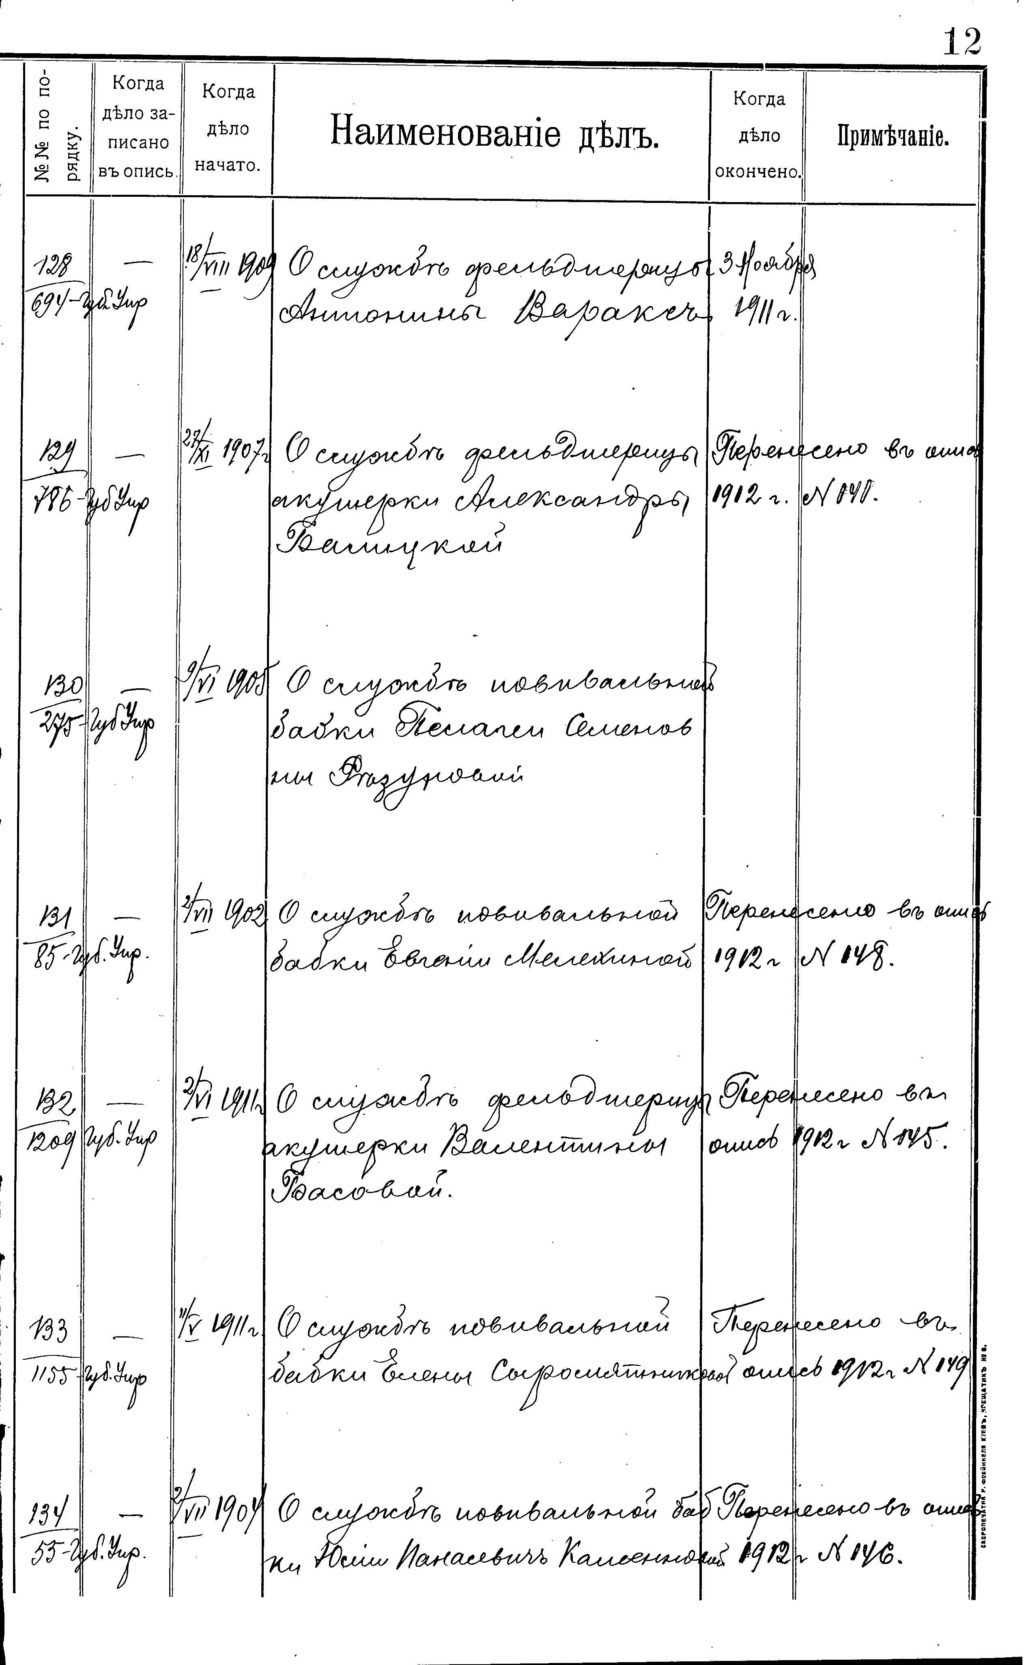 12
№№ по по-
рядку.
Когда
дѣло за-
писано
въ опись.
Когда
дѣло
начато.
Наименованіе дѣлъ.
Когда
дѣло
окончено.
Примѣчаніе.
128 — 18/VIII 1909 О службѣ фельдшерицы 3 Ноября
694-Губ Упр Антонины Вараксъ 1911 г.
129 — XI 1907 г О службѣ фельдшерицы Перенесено въ опись
786-Губ Упр акушерки Александры 1912 г. N 140.
Балицкой
130 — 9/VI 1905 О службѣ повивальной
275-Губ Упр бабки Пелагеи Семенов
ны
131 — 2/VII 1902 О службѣ повивальной Перенесено въ опись
85-Губ. Упр. бабки Евгеніи Мелехиной 1912 г N 148.
132 — 2/VI 1911 г О службѣ фельдшерицы Перенесено въ
1209 Губ. Упр акушерки Валентины опись 1912 г N 145.
Басовой.
133 — 11/V 1911 г. О службѣ повивальной Перенесено въ
1155 Губ. Упр бабки Елены Сыромятниковой опись 1912 г N 149
134 — 2/VII 1904 О службѣ повивальной баб Перенесено въ опись
55-Губ. Упр. ки Юліи Панасевичъ 1912 г N 146.